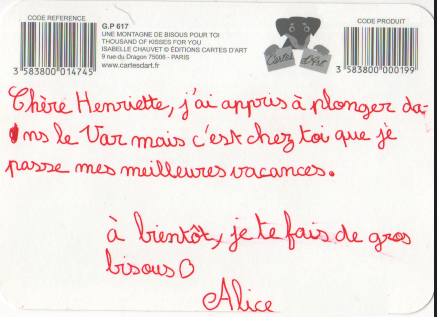 CODE REFERENCE
3 583800 014745
G.P 617
UNE MONTAGNE DE BISOUS POUR TOI
THOUSAND OF KISSES FOR YOU
ISABELLE CHAUVET © ÉDITIONS CARTES D'ART
9 rue du Dragon 75006 - PARIS
www.cartesdart.fr
Cartes d'Art
CODE PRODUIT
3 583800 000199
Chère Henriette, j'ai appris à plonger da-
ns le Var mais c'est chez toi que je
passe mes meilleures vacances.
à bientôt, je te fais de gros
bisous
Alice